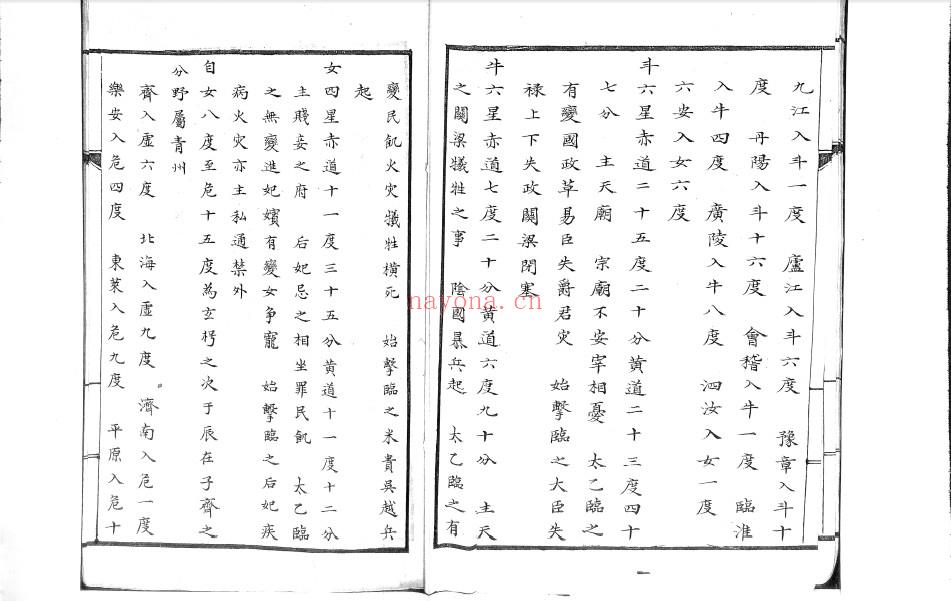 九江入斗一度　廬江入斗六度　豫章入斗十
度　丹陽入斗十六度　會稽入牛一度　臨淮
入牛四度　廣陵入牛八度　泗汝入女一度
六安入女六度
斗六星赤道二十五度二十分黄道二十三度四十
七分　主天廟　宗廟不安宰相憂　太乙臨之
有變國政草易臣失爵君灾　始擊臨之大臣失
祿上下失政關梁閉塞
牛六星赤道七度二十分黄道六度九十分　主天
之關梁犧牲之事　陰國暴兵起　太乙臨之有
變民飢火灾犧牲横死　始擊臨之米貴吳越兵
起
女四星赤道十一度三十五分黄道十一度十二分
主賤妾之府　后妃忌之相坐罪民飢　太乙臨
之無變進妃嬪有變女争寵　始擊臨之后妃疾
病火灾亦主私通禁外
自女八度至危十五度為玄枵之次于辰在子齊之
分野屬青州
齊入虛六度　北海入虛九度　濟南入危一度
樂安入危四度　東萊入危九度　平原入危十
nayona.cn